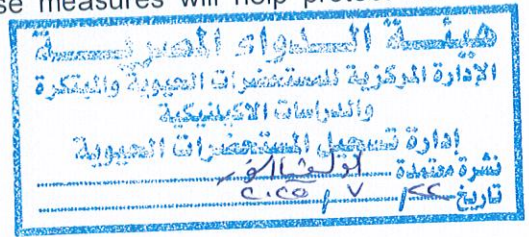 se measures will help protect
هيئة الدواء المصرية
الإدارة المركزية للمستحضرات الحيوية والمبتكرة
والدراسات الاكلينيكية
إدارة تسجيل المستحضرات الحيوية
نشرة معتمدة
تاريخ ٢٢ / ٧ / ٢٠٢٥